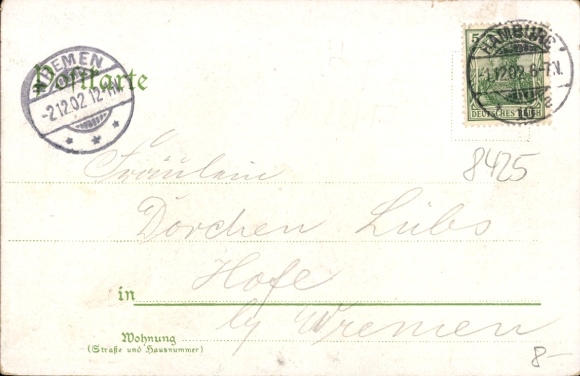 Postkarte
BREMEN
-2.12.02.12-1N.
HAMBURG
-1.12.02.6-7.N.
5
DEUTSCHES REICH
8425
Fräulein
Dorchen Lübs
Hofe
in
by Wremen
Wohnung
(Straße und Hausnummer)
8-